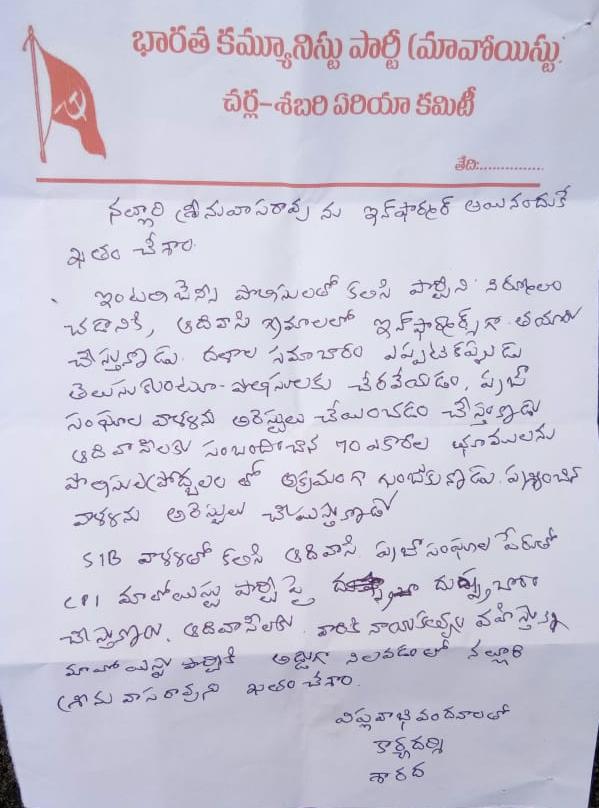 భారత కమ్యూనిస్టు పార్టీ (మావోయిస్టు)
చర్ల-శబరి ఏరియా కమిటీ
తేది:................
నల్లూరి శ్రీనువాసరావు ను ఇన్‌ఫార్మర్ అయినందుకే
ఖతం చేశాం.
ఇంటలిజెన్సి పోలిసులతో కలిసి పార్టీని నిర్మూలం
చడానికి, ఆదివాసి గ్రామాలలో ఇన్‌ఫార్మర్స్‌గా తయారు
చేస్తున్నాడు. దళాల సమాచారం ఎప్పటికప్పుడు
తెలుసుకుంటూ పోలిసులకు చేరవేయడం, ప్రజా
సంఘాల వాళ్ళను అరెస్టులు చేయించడం చేస్తున్నాడు
ఆదివాసిలకు సంబంధించిన 70 ఎకారల భూములను
పోలిసుల ప్రోద్బలం తో అక్రమంగా గుంజుకున్నాడు. ప్రశ్నించిన
వాళ్ళను అరెస్టులు చేయిస్తున్నాడు
SIB వాళ్ళతో కలిసి ఆదివాసి ప్రజాసంఘాల పేరుతో
CPI మావోయిస్టు పార్టీ పై దుష్ప్రచారం
చేస్తున్నాడు. ఆదివాసిలకు, వారికి నాయకత్వం వహిస్తున్న
మావోయిస్టు పార్టికి అడ్డుగా నిలవడంలో నల్లూరి
శ్రీనువాసరావుని ఖతం చేశాం.
విప్లవాభివందనాలతో
కార్యదర్శి
శారద